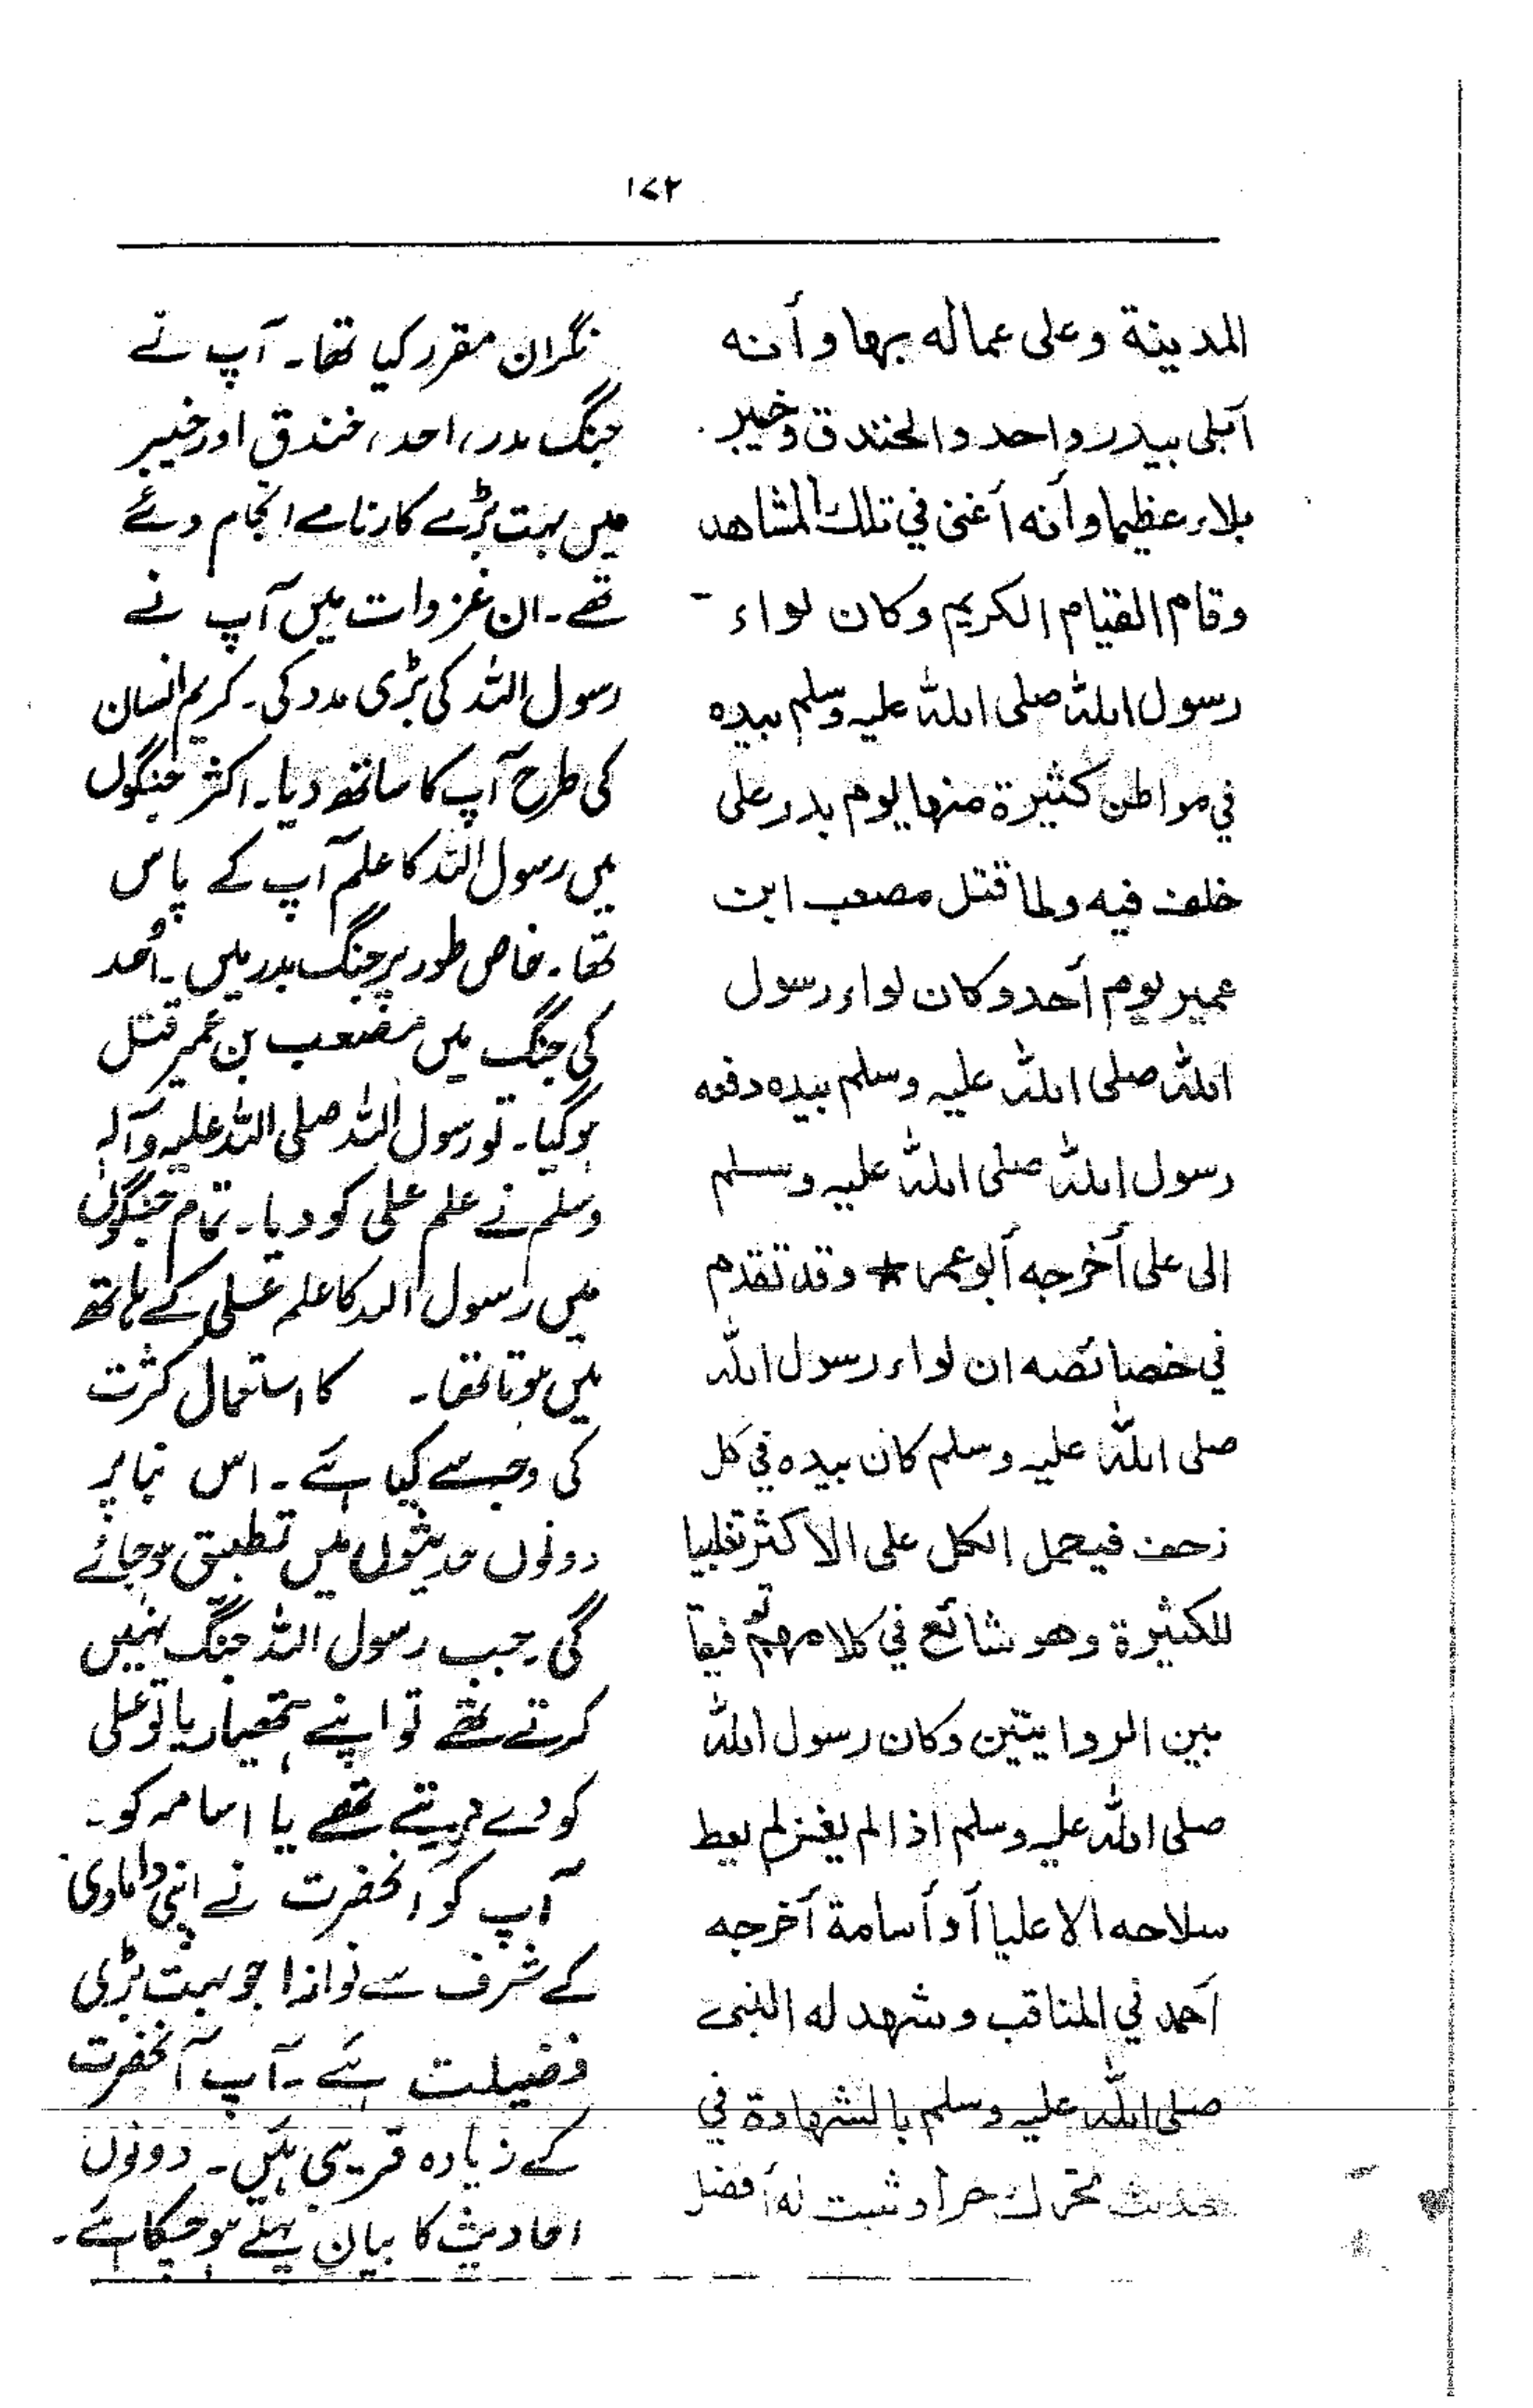 ۱۷۲
المدينة وعلى عماله بها وأنه
آبلى ببدر واحد والخندق وخيبر
بلاء عظيما وأنه أغنى في تلك المشاهد
وقام القيام الكريم وكان لواء
رسول الله صلى الله عليه وسلم بيده
في مواطن كثيرة منها يوم بدر على
خلف فيه ولما قتل مصعب ابن
عمير يوم أحد وكان لواء رسول
الله صلى الله عليه وسلم بيده دفعه
رسول الله صلى الله عليه وسلم
الى على أخرجه أبو عمر * وقد تقدم
في خصائصه ان لواء رسول الله
صلى الله عليه وسلم كان بيده في كل
زحف فيحمل الكل على الاكثر تغليبا
للكثيرة وهو شائع في كلامهم توفيقا
بين الروايتين وكان رسول الله
صلى الله عليه وسلم اذا لم يغز لم يعط
سلاحه الا عليا أو أسامة أخرجه
احمد في المناقب وشهد له النبى
صلى الله عليه وسلم بالشهادة في
حديث تحرك حرا وثبت له أفضل
نگران مقرر کیا تھا۔ آپ نے
جنگ بدر، احد، خندق اور خیبر
میں بہت بڑے کارنامے انجام دئے
تھے۔ ان غزوات میں آپ نے
رسول اللہ کی بڑی مدد کی۔ کریم انسان
کی طرح آپ کا ساتھ دیا۔ اکثر جنگوں
میں رسول اللہ کا علم آپ کے پاس
تھا۔ خاص طور پر جنگ بدر میں۔ اُحد
کی جنگ میں مصعب بن عمیر قتل
ہوگیا۔ تو رسول اللہ صلی اللہ علیہ وآلہ
وسلم نے علم علی کو دیا۔ تمام جنگوں
میں رسول اللہ کا علم علی کے ہاتھ
میں ہوتا تھا۔ کا استعمال کثرت
کی وجہ سے کیا ہے۔ اس بنا پر
دونوں حدیثوں میں تطبیق ہوجائے
گی۔ جب رسول اللہ جنگ نہیں
کرتے تھے تو اپنے ہتھیار یا تو علی
کو دے دیتے تھے یا اسامہ کو۔
آپ کو آنحضرت نے اپنی دامادی
کے شرف سے نوازا جو بہت بڑی
فضیلت ہے۔ آپ آنحضرت
کے زیادہ قریبی ہیں۔ دونوں
احادیث کا بیان پہلے ہوچکا ہے۔